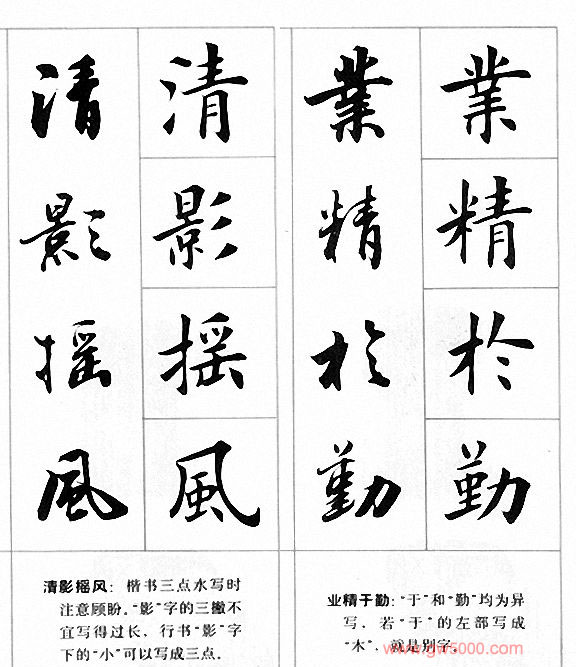 業精於勤
業精於勤
清影摇風
清影摇風
业精于勤：“于”和“勤”均为异
写，若“于”的左部写成
“木”，就是别字。
清影摇风：楷书三点水写时
注意顾盼，“影”字的三撇不
宜写得过长，行书“影”字
下的“小”可以写成三点．
www.gw5000.com